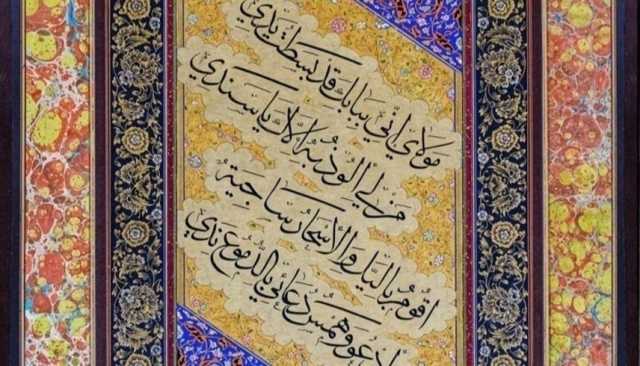 مولاي إنّي ببابك قد بسطت يدي
من لي ألوذ به إلاّك يا سندي
اقوم بالليل والأسحار ساجية
ادعو وهمس دعائي بالدموع ندي